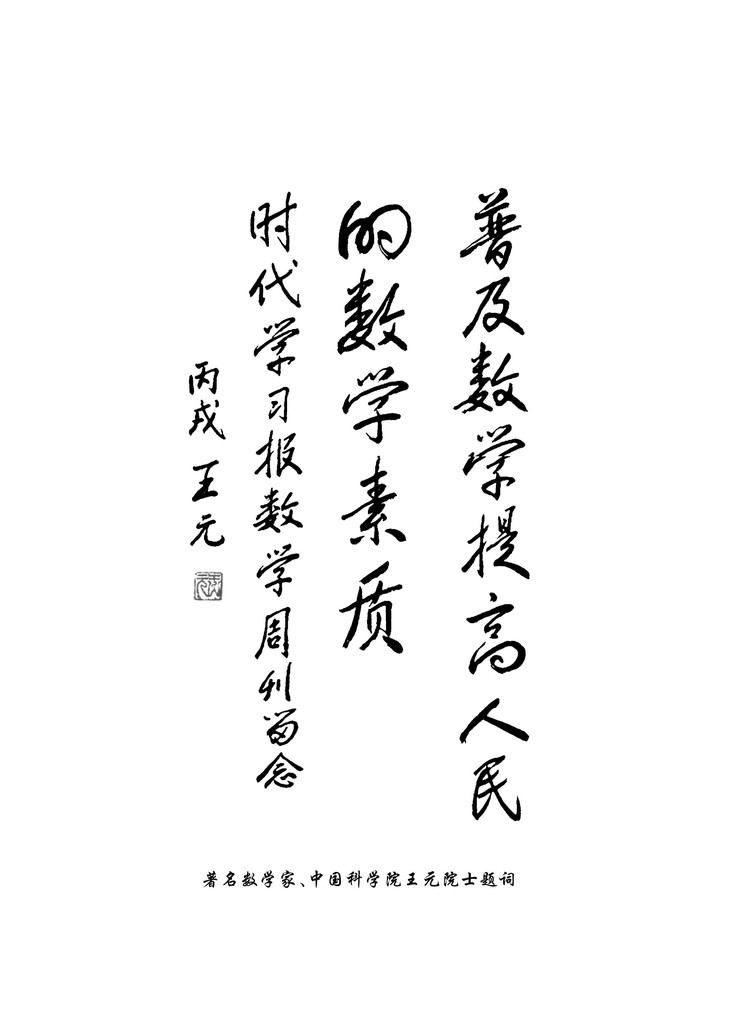 普及数学提高人民
的数学素质
时代学习报数学周刊留念
丙戌 王元
著名数学家、中国科学院王元院士题词